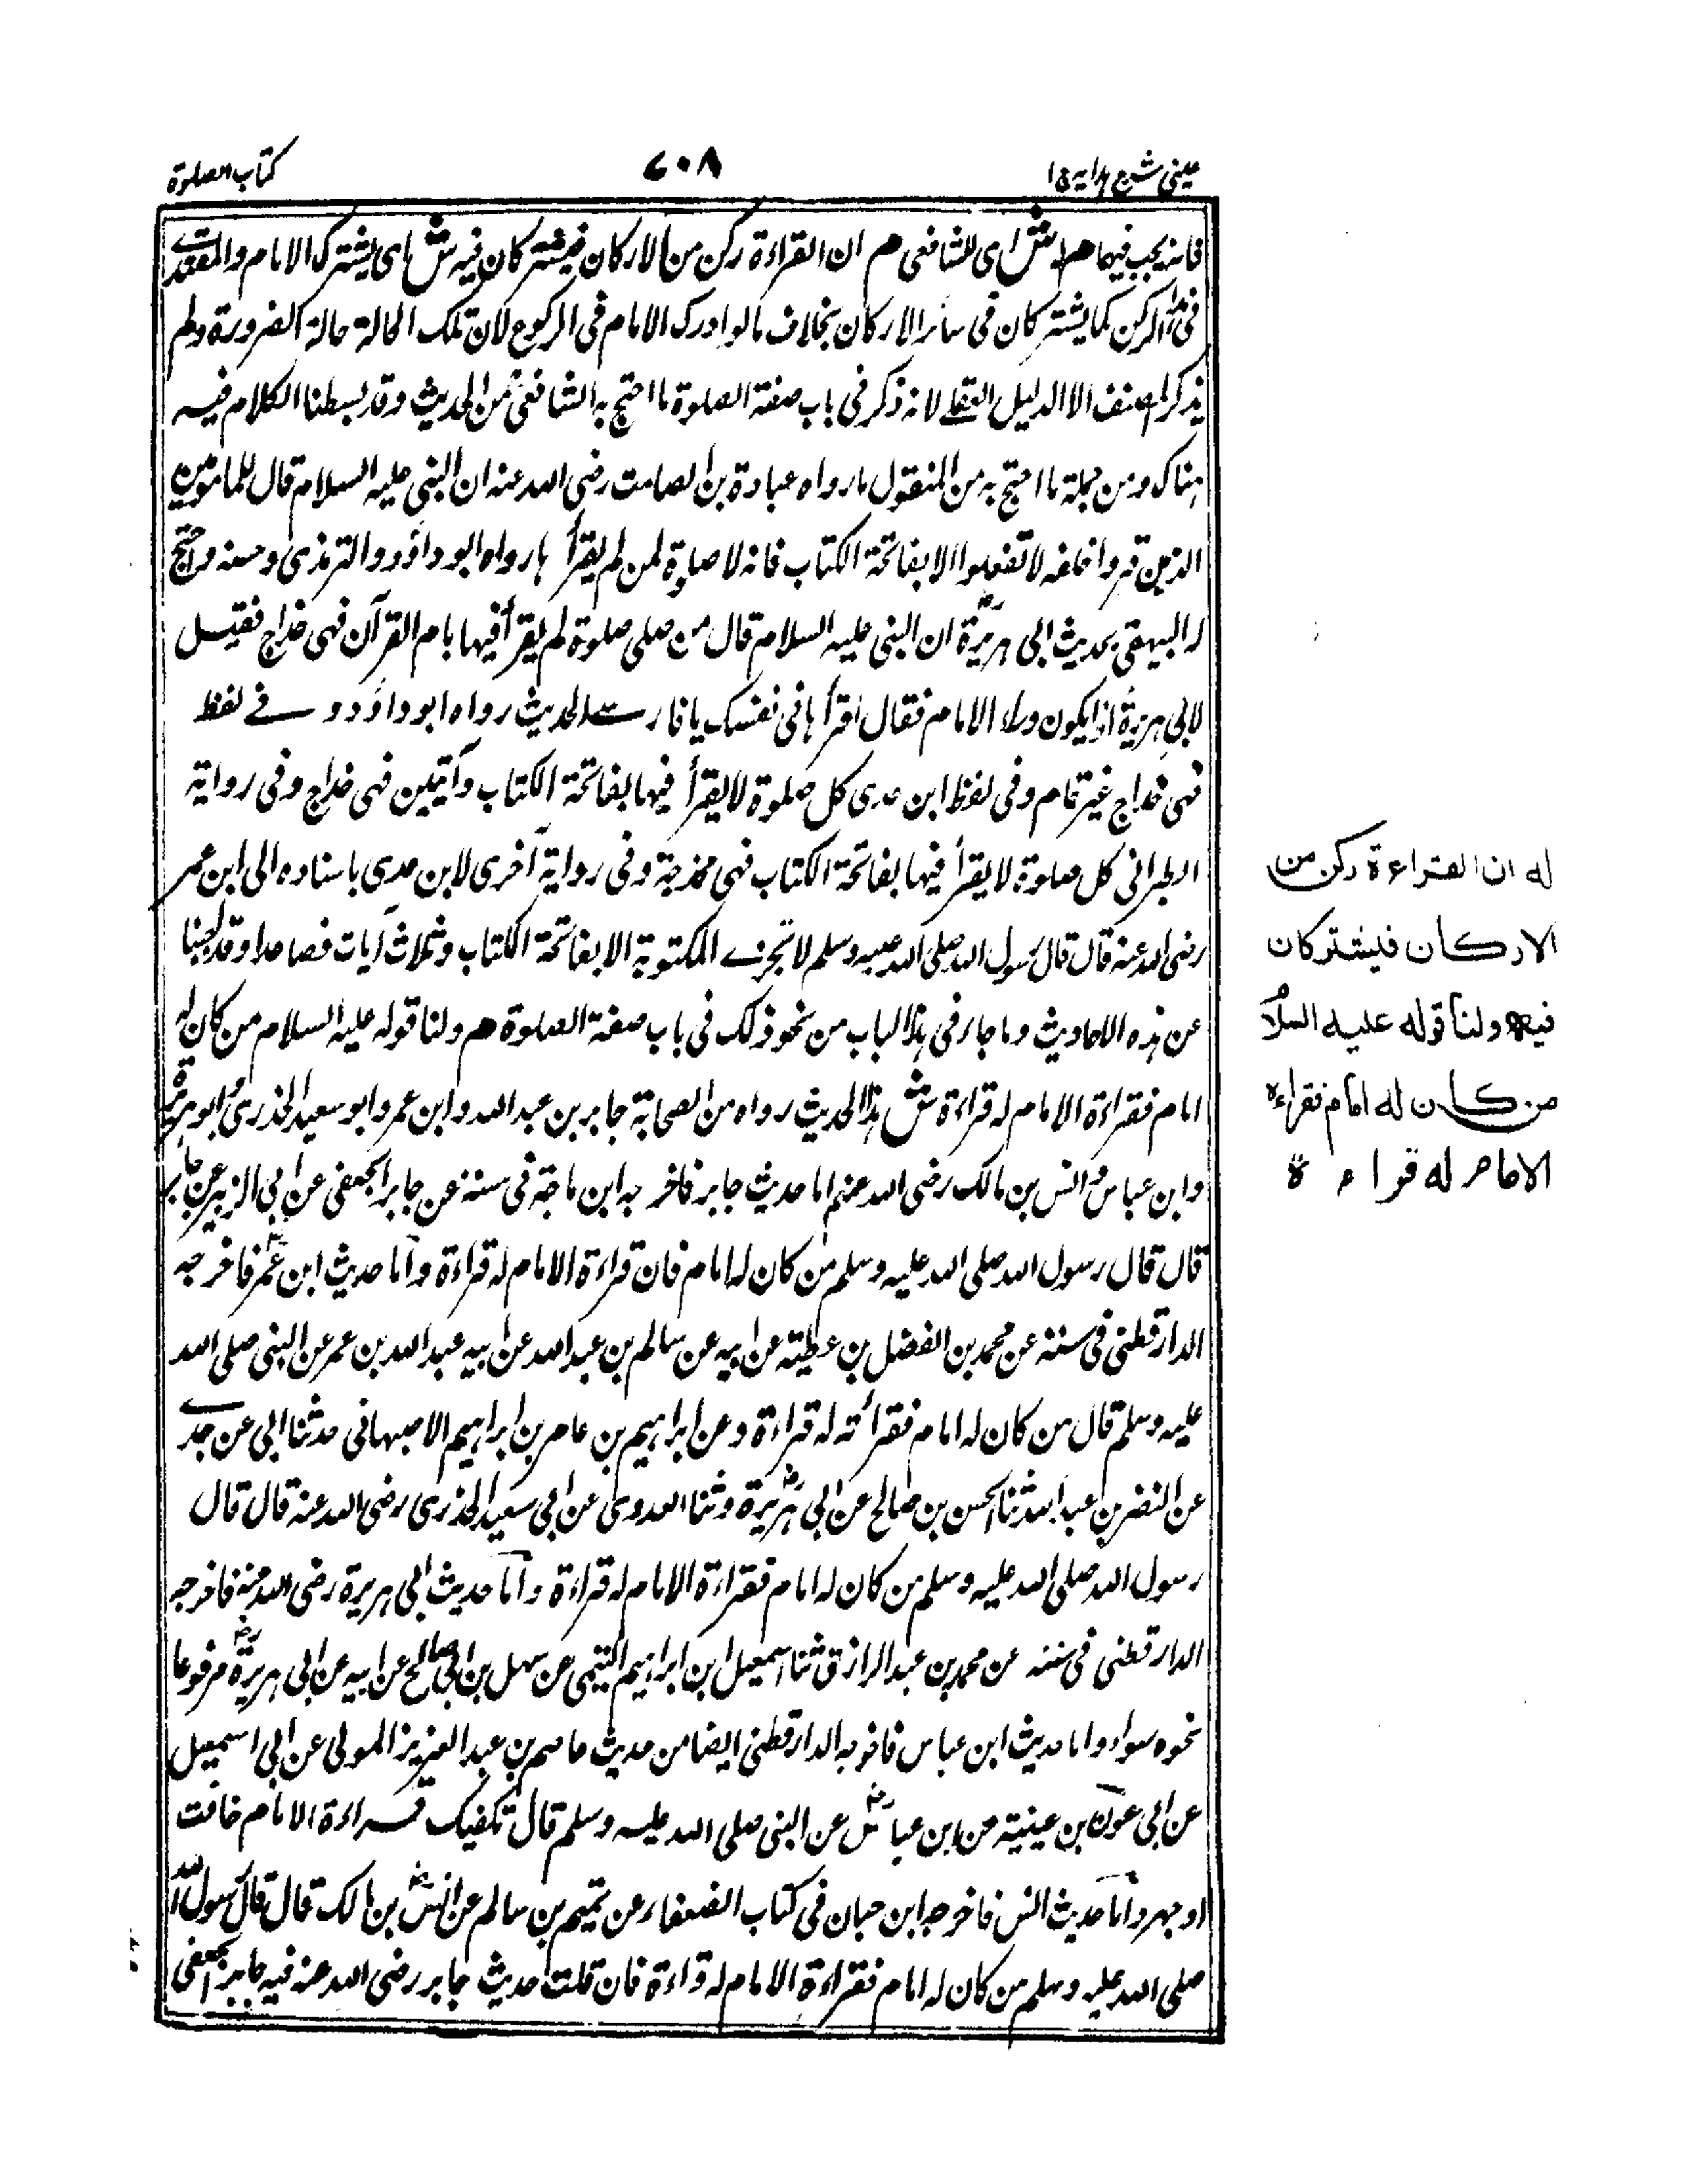 عینی شرح ہدایہ ج ۱
۷۰۸
کتاب الصلوة
فانه یجب فیهما هم له ش ای للشافعی هم ان القراءة رکن من الارکان فیشترکان فیه ش ای یشترک الامام والمقتدی
فی هذا الرکن کما یشترکان فی سائر الارکان بخلاف ما لو ادرک الامام فی الرکوع لان تلک الحالة حالة الضرورة ولم
یذکر المصنف الا الدلیل العقلی لانه ذکر فی باب صفة الصلوة ما احتج به الشافعی من الحدیث وقد بسطنا الکلام فیه
هناک ومن جملة ما احتج به من المنقول ما رواه عبادة بن الصامت رضی الله عنه ان النبی علیه السلام قال للمامومین
الذین قروا خلفه لا تفعلوا الا بفاتحة الکتاب فانه لا صلوة لمن لم یقرأ بها رواه ابو داؤد والترمذی وحسنه واحتج
له البیهقی بحدیث ابی هریرة ان النبی علیه السلام قال من صلی صلوة لم یقرأ فیها بام القرآن فهی خداج فقیل
لابی هریرة انا یکون وراء الامام فقال اقرأ بها فی نفسک یا فارسی الحدیث رواه ابو داؤد و فی لفظ
فهی خداج غیر تمام وفی لفظ ابن عدی کل صلوة لا یقرأ فیها بفاتحة الکتاب وآیتین فهی خداج وفی روایة
الطبرانی کل صلوة لا یقرأ فیها بفاتحة الکتاب فهی مخدجة وفی روایة آخری لابن عدی باسناده الی ابن عمر
رضی الله عنه قال قال رسول الله صلی الله علیه وسلم لا تجزی المکتوبة الا بفاتحة الکتاب وثلاث آیات فصاعدا وقد اجبنا
عن هذه الاحادیث وما جاء فی هذا الباب من نحو ذلک فی باب صفة الصلوة هم ولنا قوله علیه السلام من کان له
امام فقراءة الامام له قراءة ش هذا الحدیث رواه من الصحابة جابر بن عبد الله وابن عمر وابو سعید الخدری وابو هریرة
وابن عباس وانس بن مالک رضی الله عنهم اما حدیث جابر فاخرجه ابن ماجة فی سننه عن جابر الجعفی عن ابی الزبیر عن جابر
قال قال رسول الله صلی الله علیه وسلم من کان له امام فان قراءة الامام له قراءة واما حدیث ابن عمر فاخرجه
الدارقطنی فی سننه عن محمد بن الفضل بن عطیة عن ابیه عن سالم بن عبد الله عن ابیه عبد الله بن عمر عن النبی صلی الله
علیه وسلم قال من کان له امام فقرأته له قراءة وعن ابراهیم بن عامر بن ابراهیم الاصبهانی حدثنا ابی عن جدی
عن النضر بن عبد الله ثنا الحسن بن صالح عن ابی هریرة وثنا العدوی عن ابی سعید الخدری رضی الله عنه قال قال
رسول الله صلی الله علیه وسلم من کان له امام فقراءة الامام له قراءة واما حدیث ابی هریرة رضی الله عنه فاخرجه
الدارقطنی فی سننه عن محمد بن عبد الرازق ثنا اسمعیل ابن ابراهیم التیمی عن سهل بن ابی صالح عن ابیه عن ابی هریرة مرفوعا
نحوه سواء واما حدیث ابن عباس فاخرجه الدارقطنی ایضا من حدیث عاصم بن عبد العزیز المولی عن ابی اسمعیل
عن ابی عون بن عیینة عن ابن عباس عن النبی صلی الله علیه وسلم قال تکفیک قراءة الامام خافت
او جهر واما حدیث انس فاخرجه ابن حبان فی کتاب الضعفاء عن تمیم بن سالم عن انس بن مالک قال قال رسول الله
صلی الله علیه وسلم من کان له امام فقراءة الامام له قراءة فان قلت حدیث جابر رضی الله عنه فیه جابر الجعفی
له ان القراءة رکن من
الارکان فیشترکان
فیه ولنا قوله علیه السلام
من کان له امام فقراءة
الامام له قراءة